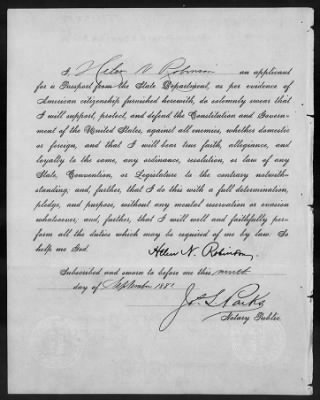 I, Helen N. Robinson an applicant
for a Passport from the State Department, as per evidence of
American citizenship furnished herewith, do solemnly swear that
I will support, protect, and defend the Constitution and Govern-
ment of the United States, against all enemies, whether domestic
or foreign, and that I will bear true faith, allegiance, and
loyalty to the same, any ordinance, resolution, or law of any
State, Convention, or Legislature to the contrary notwith-
standing, and, further, that I do this with a full determination,
pledge, and purpose, without any mental reservation or evasion
whatsoever, and, further, that I will well and faithfully per-
form all the duties which may be required of me by law: So
help me God.
Helen N. Robinson
Subscribed and sworn to before me this ninth
day of September 1881
Jos. L. Parks
Notary Public.